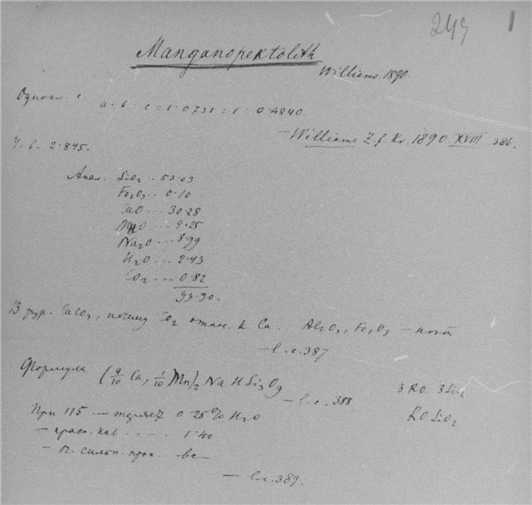 249
1
Manganopektolith
Williams 1890
a : b : c = 1·0731 : 1 : 0·4840.
— Williams Z. f. Kr. 1890 XVIII 386.
У. в. 2·845.
Анал. SiO2 .. 53·03
Fe2O3 .. 0·10
CaO .. 30·28
MnO .. 4·25
Na2O ... 8·99
H2O ... 2·43
CO2 ... 0·82
99·90.
CaCO3, почему CO2 относ. к Ca. Al2O3, Fe2O3 —
— l. c. 387
Формула (9/10 Ca, 1/10 Mn)2 Na H Si3O9 — l. c. 388
3 RO. 3SiO2
RO SiO2
При 115 — теряет 0·25% H2O
— красн. кал. . . . . 1·40
— сильн. прок. —
— l. c. 389.